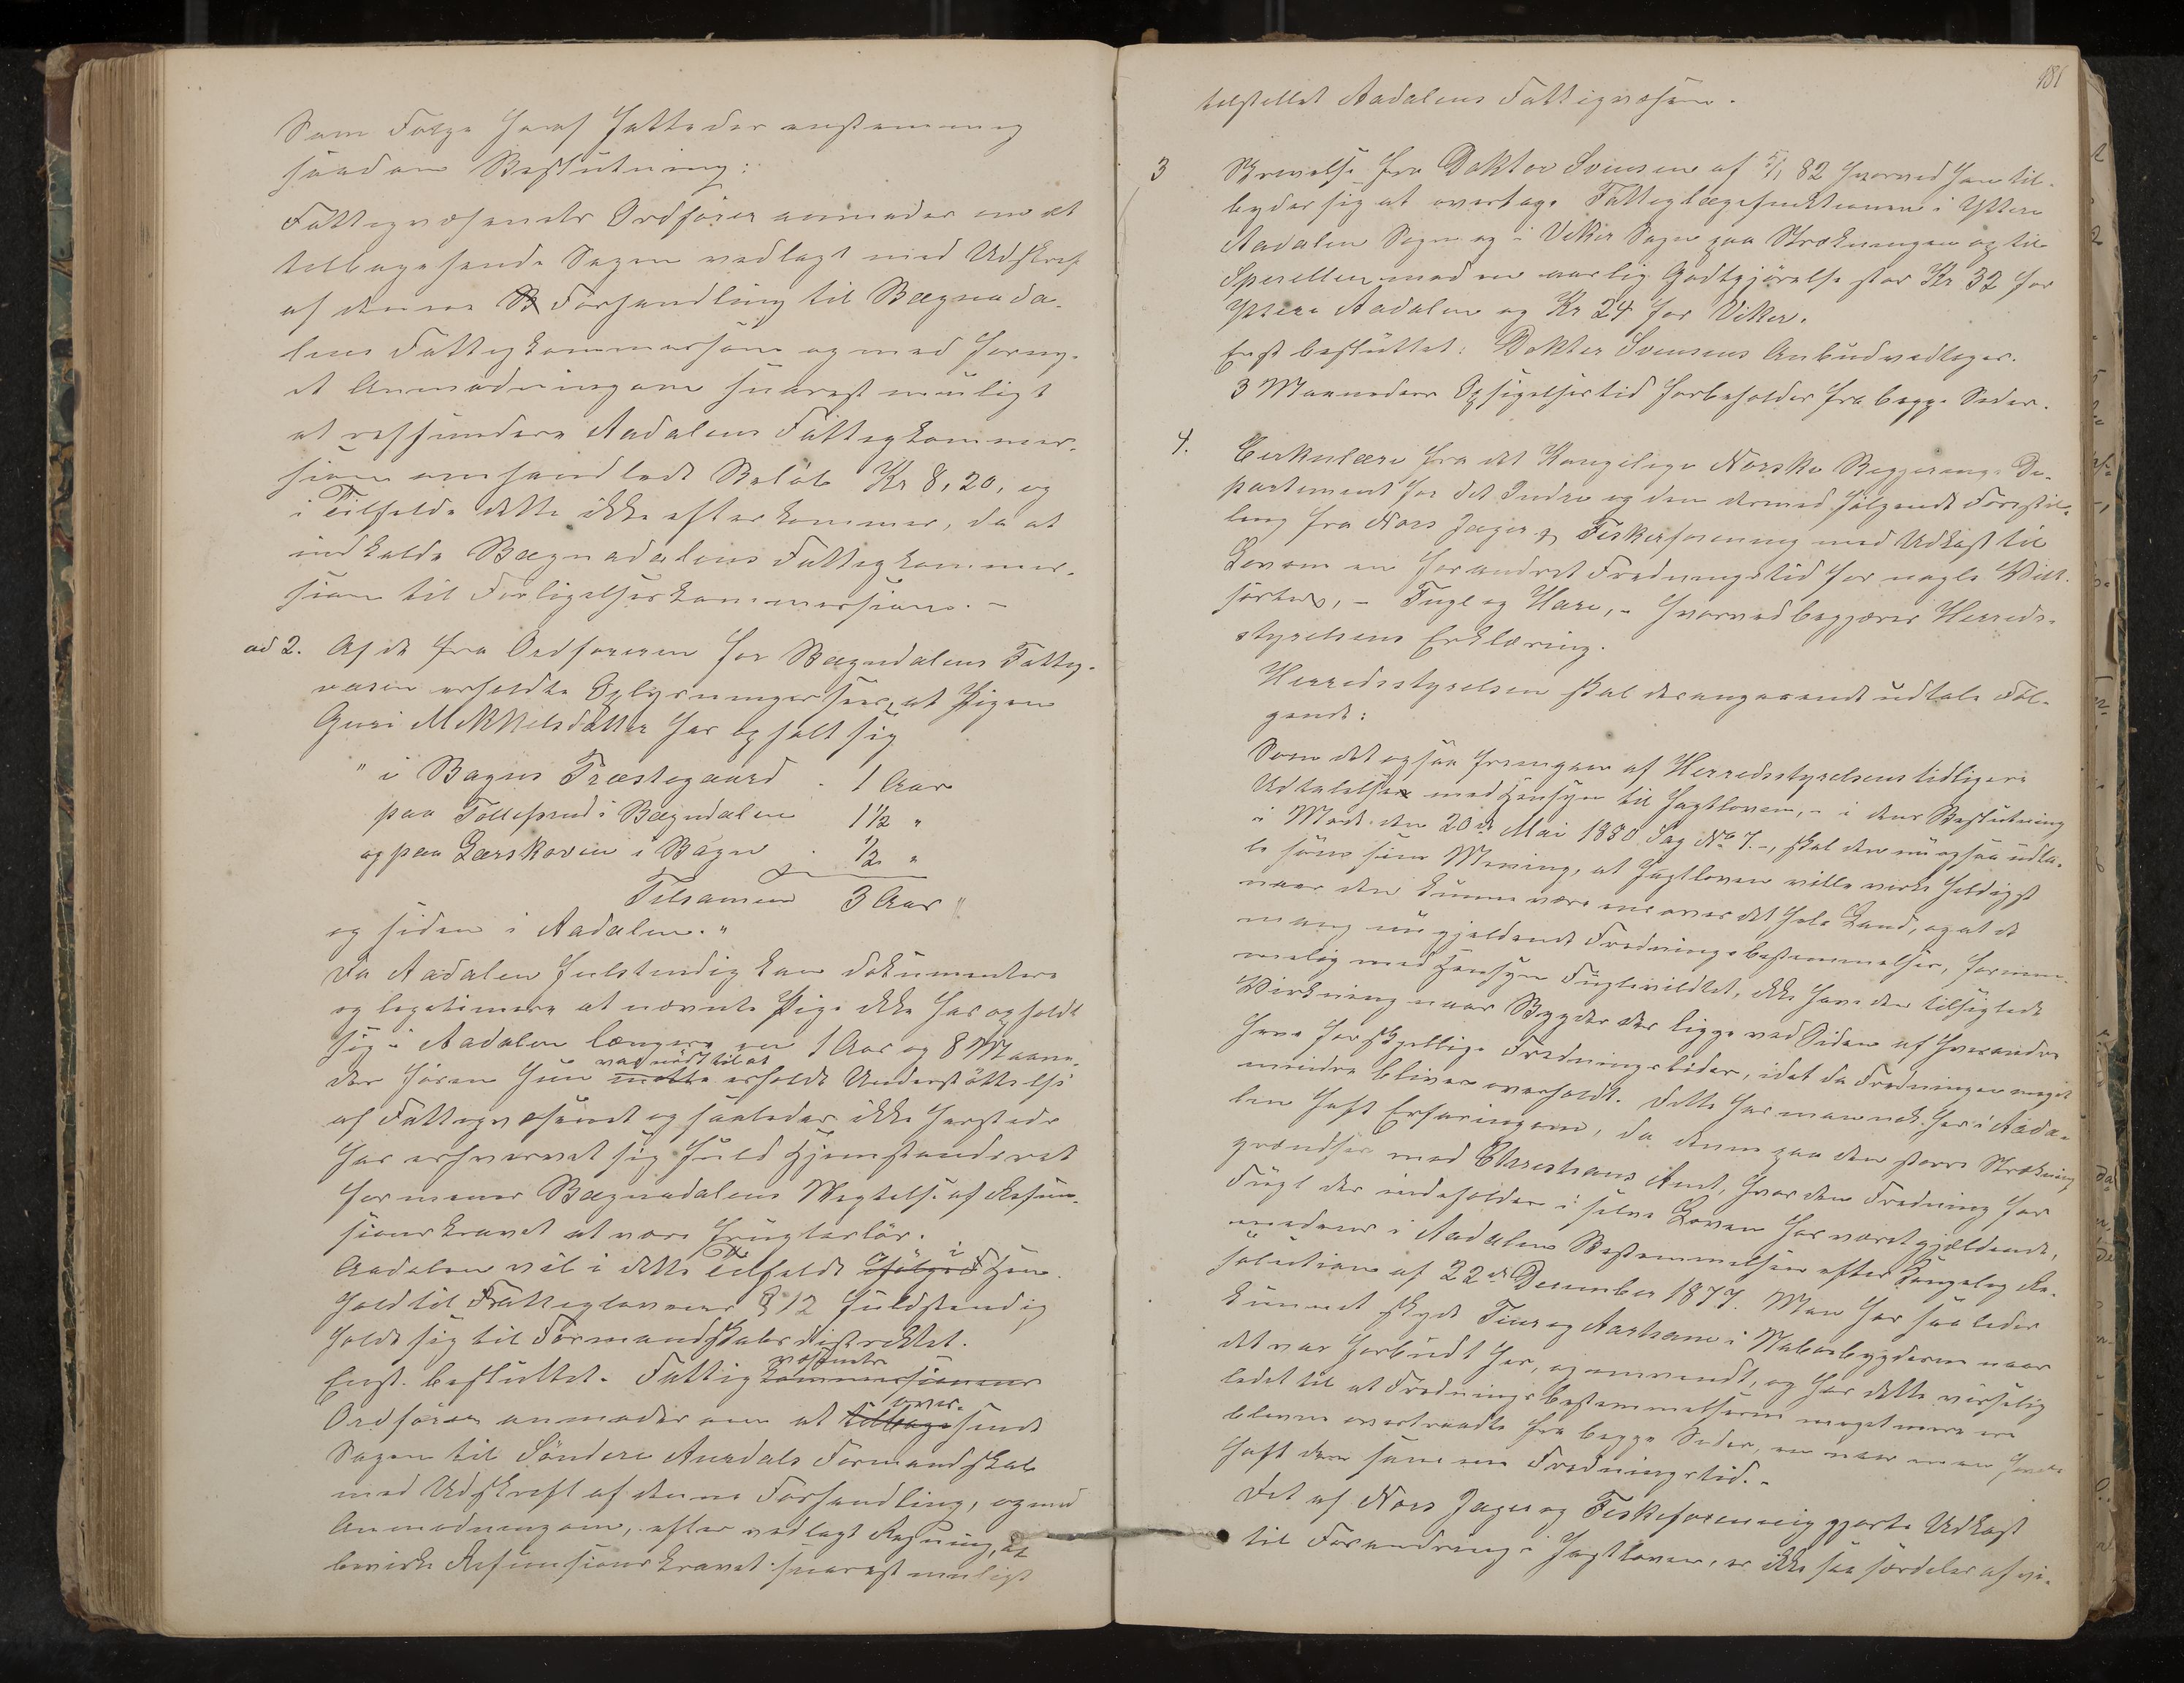 Som Følge heraf fattedes enstemmig
saadan Beslutning:
Fattigvæsenets Ordfører anmodes om at
tilbagesende Sagen vedlagt med Udskrift
af denne Forhandling til Bægnada-
lens Fattigkommission og med forny-
et Anmodning om snarest muligt
at refundere Aadalens Fattigkommis-
sion omhandlede Beløb Kr 8,20, og
i Tilfælde dette ikke efterkommes, da at
indkalde Bægnadalens Fattigkommis-
sion til Forligelseskommission. –
ad 2. Af de fra Ordføreren for Bægndalens Fattig-
væsen erholdte Oplysninger sees, at Pigen
Guri Mikkelsdatter har opholt sig
" i Bagns Præstegaard . 1 Aar
paa Tollefsrud i Bægndalen 1½ "
og paa Garskovin i Bagn . ½ "
Tilsamen 3 Aar "
og siden i Aadalen. "
Da Aadalen fulstendig kan dokumentere
og legetimere at nævnte Pige ikke har opholdt
sig i Aadalen længere en 1 Aar og 8 Maane-
der føren hun var nødt til at erholde Understøttelse
af Fattigvæsenet og saaledes ikke hersteds
har erhvervet sig fuld Hjemstandsret
formener Bægnadalens Vægtelse af Refun-
sionskravet at være frugtesløs.
Aadalen vil i dette Tilfælde i Hen-
hold til Fattiglovens § 12 fuldstendig
holde sig til Formandskabsdistriktet.
Enst. besluttet. Fattigvæsenets
Ordfører anmodes om at oversende
Sagen til Søndere Aurdals Formandskab
med Udskrift af denne Forhandling, og med
Anmodning om, efter vedlagt Regning, at
bevirke Refunsionskravet snarest muligt
181
tilstillet Aadalens Fattigvæsen.
3 Skrivelse fra Doktor Svensen af 5/1 82 hvorved han til-
byder sig at overtage Fattiglægefunktionen i Yttre
Aadalen Sogn og i Viker Sogn paa Strækningen op til
Sperellen mod en aarlig Godtgjørelse stor Kr 32 for
Yttre Aadalen og Kr 24 for Viker.
Enst besluttet: Doktor Svensens Anbud vedtages.
3 Maaneders Opsigelsestid forbeholdes fra begge Sider.
4. Cirkulære fra det Kongelige Norske Regjerings De-
partement for det Indre og den dermed følgende Forestil-
ling fra Nors Jæger og Fiskerforening med Udkast til
Lov om en forandret Fredningstid for nogle Vildt-
sorter, – Fugl og Hare, – hvorved begjæres Herreds-
styrelsens Erklæring.
Herredsstyrelsen skal desangaaende udtale Føl-
gende:
Som det ogsaa fremgaar af Herredsstyrelsens tidligere
Udtalelse med Hensyn til Jagtloven, – i dens Beslutning
i Møde den 20de Mai 1880 Sag No 7. –, skal den nu ogsaa udta-
le som sin Mening, at Jagtloven ville virke heldigst
naar den kunne være ens over det hele Land, og at de
mang nu gjeldende Fredningsbestemmelser, fornem-
melig med Hensyn Fuglevildtet, ikke have den tilsigtede
Virkning naar Bygder der ligge ved Siden af hverandre
have forskjellige Fredningstider, idet da Fredningen meget
mindre bliver overholdt. Dette har man nok her i Aada-
len haft Erfaring om, da denne paa den større Strækning
grændser med Christians Amt, hvor den Fredning for
Fugl der indeholdes i selve Loven har været gjældende,
medens i Aadalen Bestemmelsen efter Kongelig Re-
solution af 22de Desember 1877. Man har saaledes
kunnet skyde Tiur og Aarhane i Nabobygderne naar
det var forbudt her, og omvendt, og har dette virkelig
ledet til at Fredningsbestemmelserne meget mere er
blevne overtraadte fra begge Sider, en naar man havde
haft den samme Fredningstid. –
Det af Nors Jæger og Fiskeforening gjorte Udkast
til Forandring i Jagtloven, er ikke saa særdeles af vi-